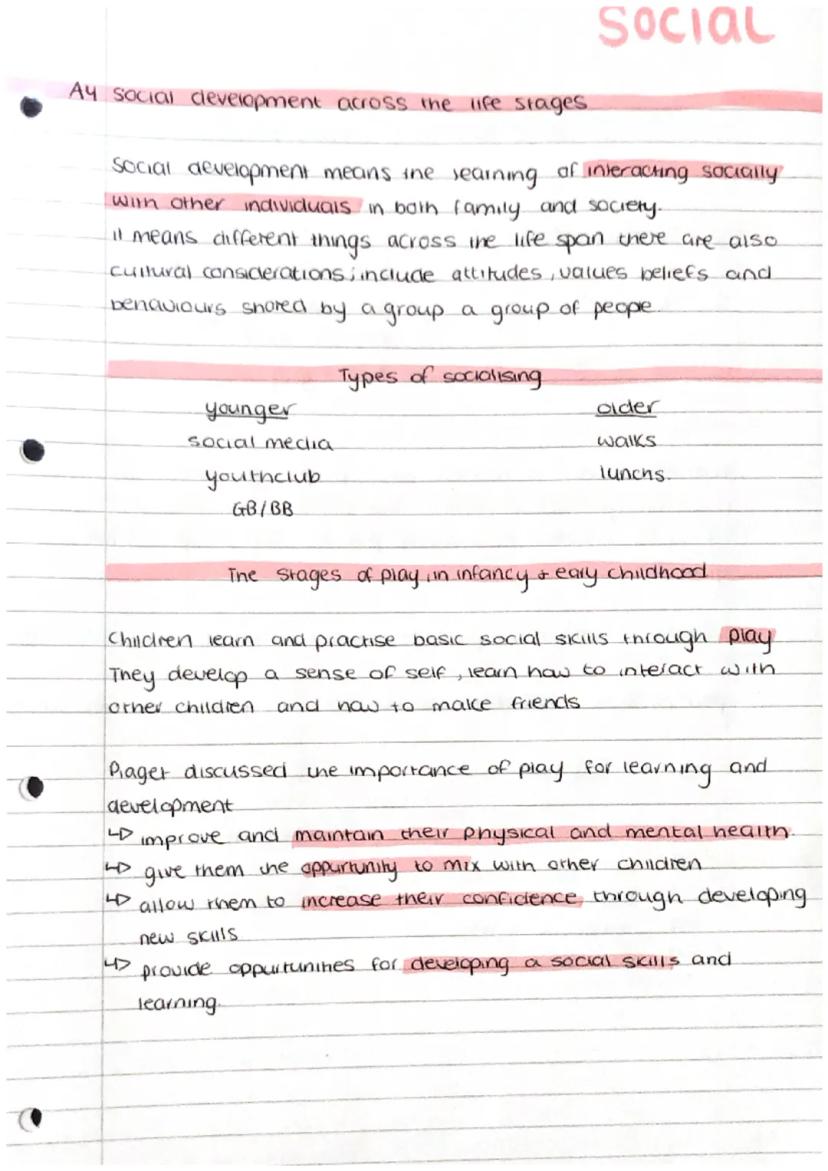 SOCIAL
A4 social development across the life stages
Social development means the learning of interacting socially
with other individuals in both family and society.
it means different things across the life span there are also
cultural considerations; include attitudes, values beliefs and
behaviours shared by a group a group of people.
Types of socialising
younger older
social media walks
youthclub lunchs.
GB/BB
The stages of play in infancy + early childhood
Children learn and practise basic social skills through play
They develop a sense of self, learn how to interact with
other children and how to make friends
Piaget discussed the importance of play for learning and
development
↳ improve and maintain their physical and mental health.
↳ give them the oppurtunity to mix with other children
↳ allow them to increase their confidence through developing
new skills
↳ provide oppurtunities for developing a social skills and
learning.